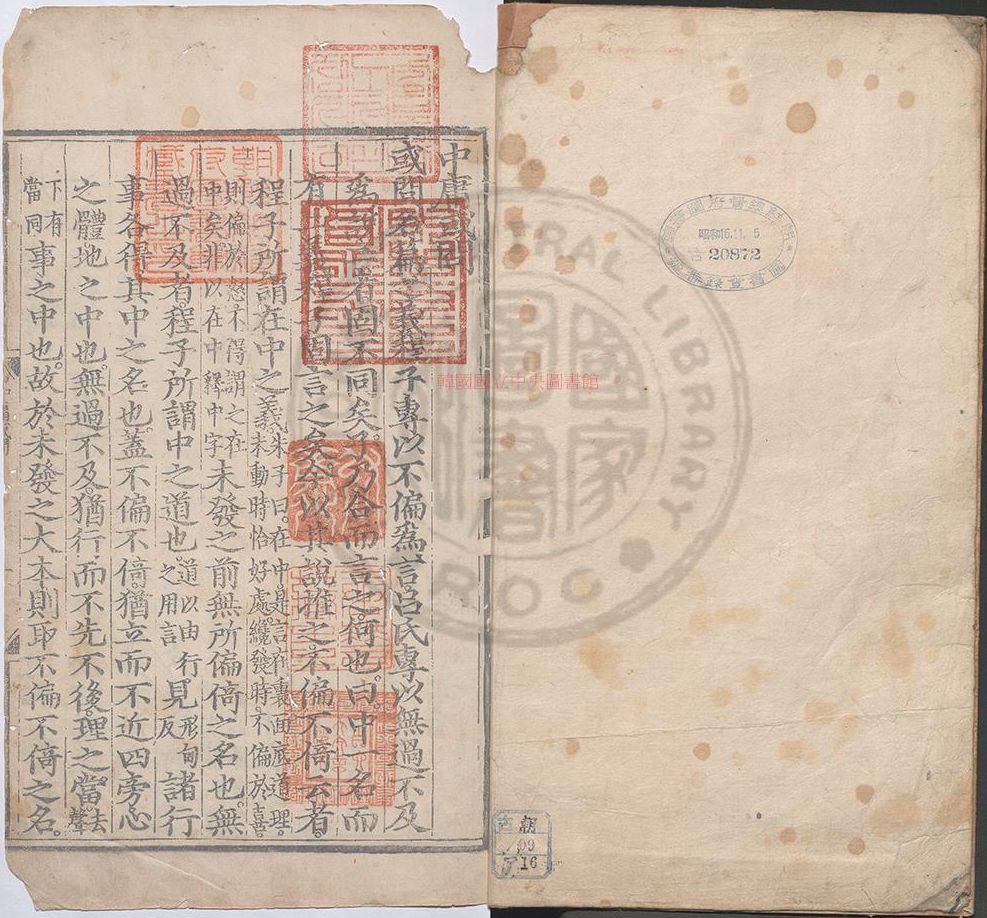 中庸或問
或問名篇之義程子專以不偏爲言。呂氏專以無過不及
爲說。二者固不同矣。子乃合而言之。何也。曰。中一名而
有二義。程子固言之矣。今以其說推之。不偏不倚云者。
程子所謂在中之義。朱子曰。在中。是言在裏面底道理。未動時恰好處。纔發時。不偏於喜。
則偏於怒。不得謂之在中矣。罪以在中釋中字未發之前無所偏倚之名也。無
過不及者。程子所謂中之道也。道以由行之用言見形甸反諸行
事各得其中之名也。蓋不偏不倚。猶立而不近四旁。心
之體。地之中也。無過不及。猶行而不先不後。理之當去聲
下有當同事之中也。故於未發之大本。則取不偏不倚之名。
韓國國立中央圖書館
昭和16.11.5
古20872
古朝
09
16
國家圖書館
LIBRARY